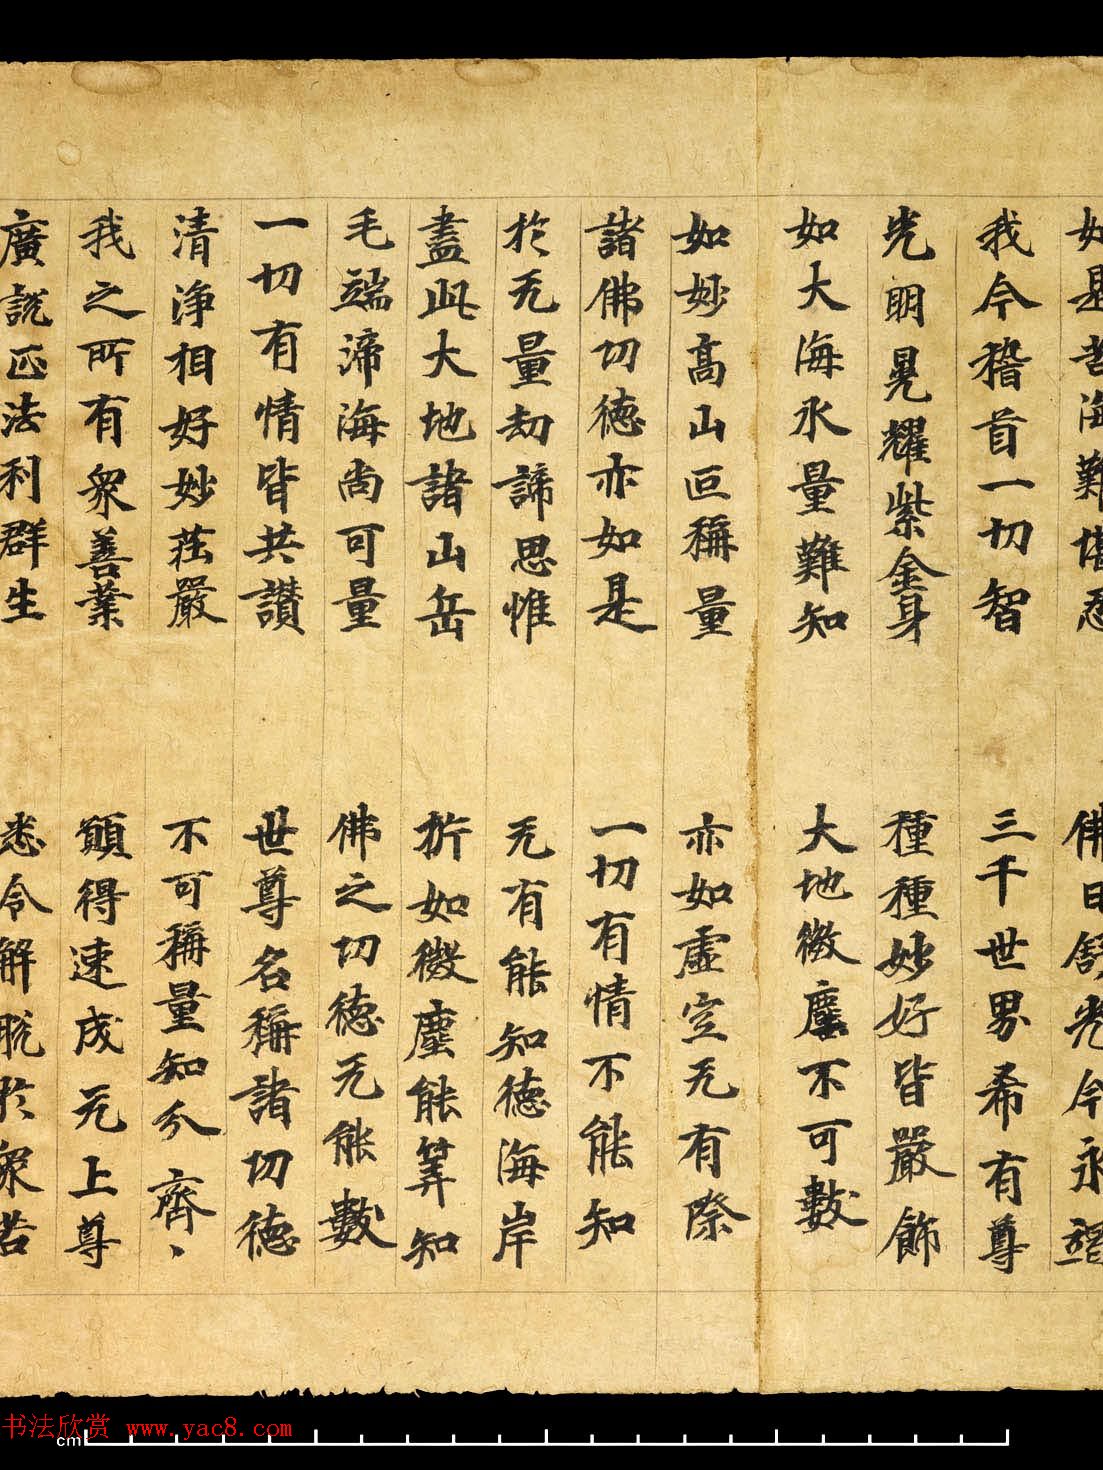 如是苦海難堪忍 佛日舒光令永竭
我今稽首一切智 三千世界希有尊
光明晃耀紫金身 種種妙好皆嚴飾
如大海水量難知 大地微塵不可數
如妙高山叵稱量 亦如虛空无有際
諸佛功德亦如是 一切有情不能知
於无量劫諦思惟 无有能知德海岸
盡此大地諸山岳 析如微塵能筭知
毛端渧海尚可量 佛之功德无能數
一切有情皆共讚 世尊名稱諸功德
清淨相好妙莊嚴 不可稱量知分齊、、
我之所有眾善業 願得速成无上尊
廣說正法利群生 悉令解脫於眾苦
书法欣赏 www.yac8.com
cm